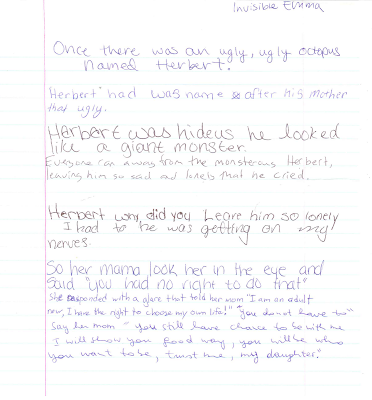 Invisible Emma
Once there was an ugly, ugly octopus
named Herbert.
Herbert had was name so after his mother
that ugly.
Herbert was hideus he looked
like a giant monster.
Everyone ran away from the monsterous Herbert,
leaving him so sad and lonely that he cried.
Herbert why did you Leave him so lonely
I had to he was getting on my
nerves.
So her mama look her in the eye and
said "you had no right to do that"
She responded with a glare that told her mom "I am an adult
now, I have the right to choose my own life!" "You do not have to"
Say her mom "you still have chance to be with me
I will show you good way, you will be who
you want to be, trust me, my daughter."